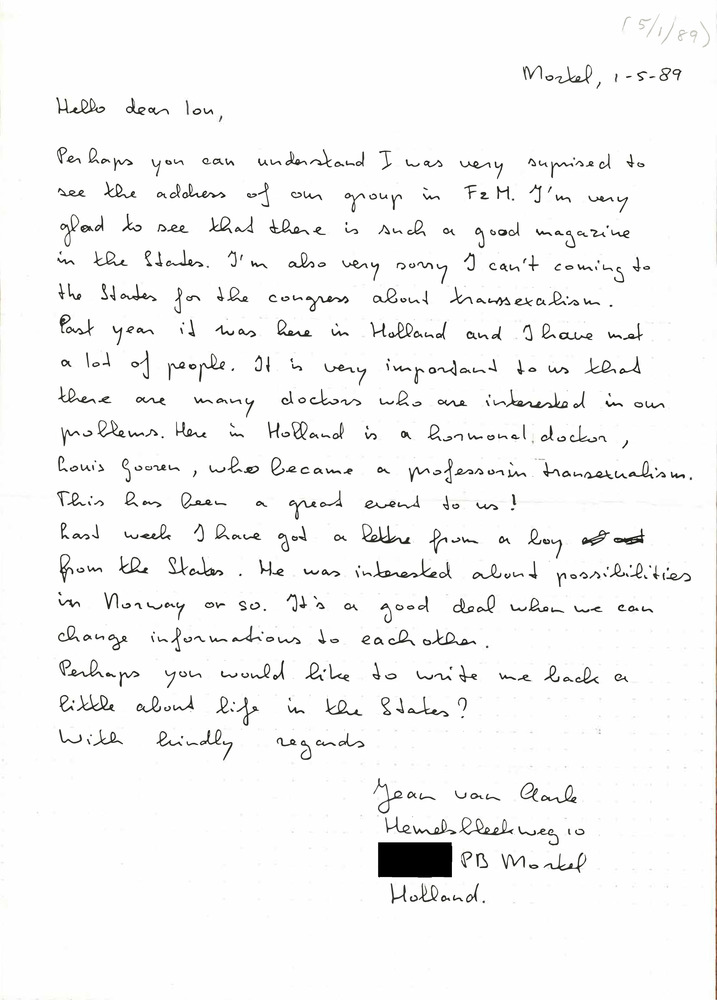 (5/1/89)
Morkel, 1-5-89
Hello dear Lou,
Perhaps you can understand I was very suprised to
see the address of our group in F2M. I'm very
glad to see that there is such a good magazine
in the States. I'm also very sorry I can't coming to
the States for the congress about transsexalism.
Past year it was here in Holland and I have met
a lot of people. It is very important to us that
there are many doctors who are interested in our
problems. Here in Holland is a hormonal doctor,
Louis Gooren, who became a professor in transexualism.
This has been a great event to us!
Last week I have got a lettre from a boy
from the States. He was interested about possibilities
in Norway or so. It's a good deal when we can
change informations to each other.
Perhaps you would like to write me back a
little about life in the States?
With kindly regards
Jean van
10
PB Morkel
Holland.